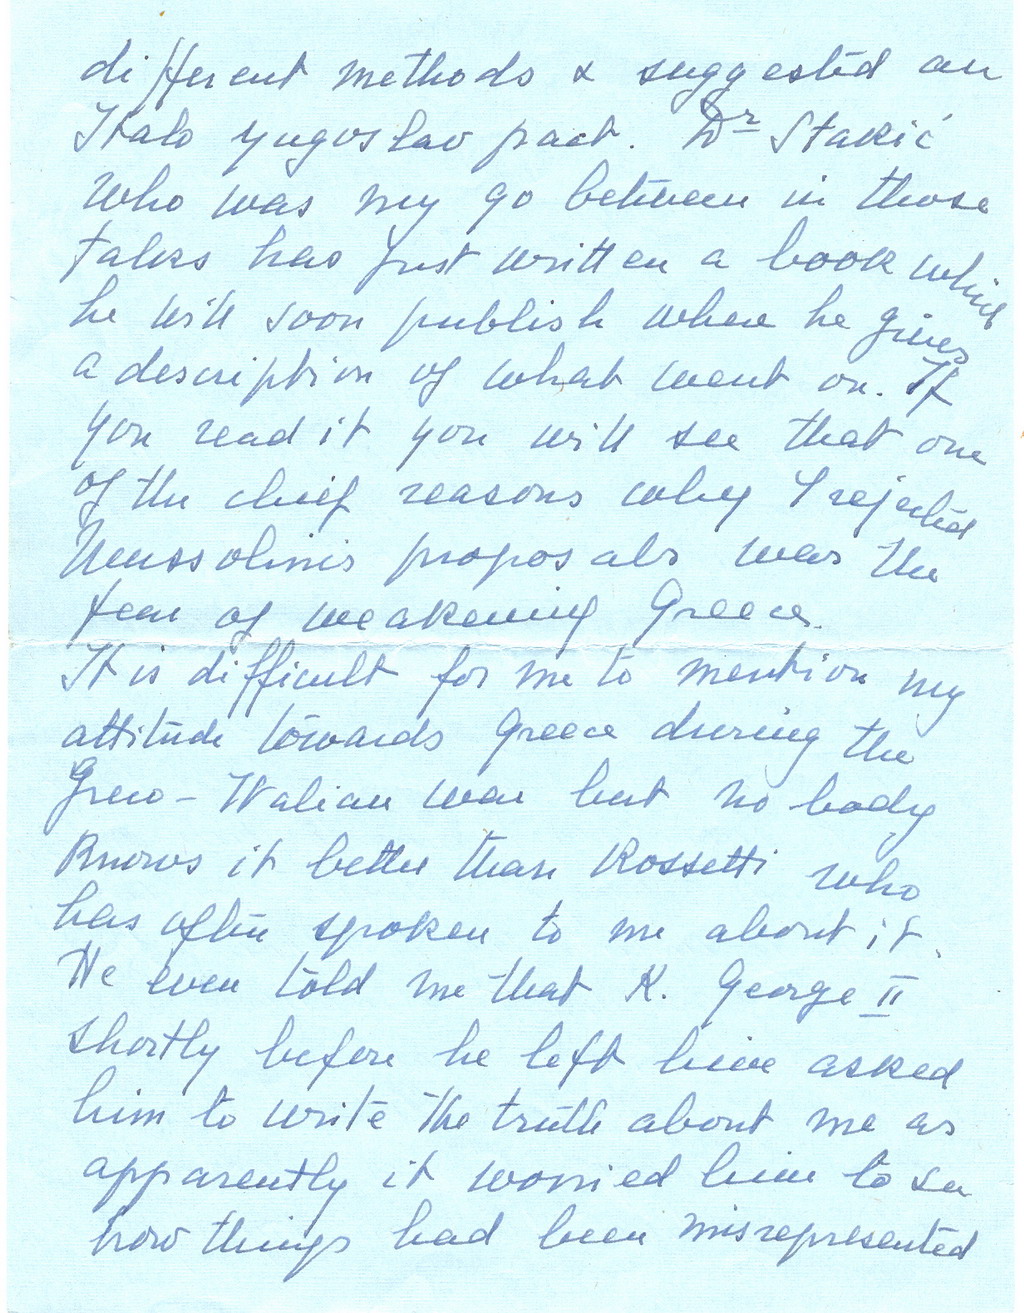 different methods & suggested an
Italo Yugoslav pact. Dr Stakić
who was my go between in those
talks has just written a book which
he will soon publish where he gives
a description of what went on. If
you read it you will see that one
of the chief reasons why I rejected
Mussolinis proposals was the
fear of weakening Greece.
It is difficult for me to mention my
attitude towards Greece during the
Greco - Italian war but no body
knows it better than Rossetti who
has often spoken to me about it.
He even told me that K. George II
shortly before he left him asked
him to write the truth about me as
apparently it worried him to see
how things had been misrepresented